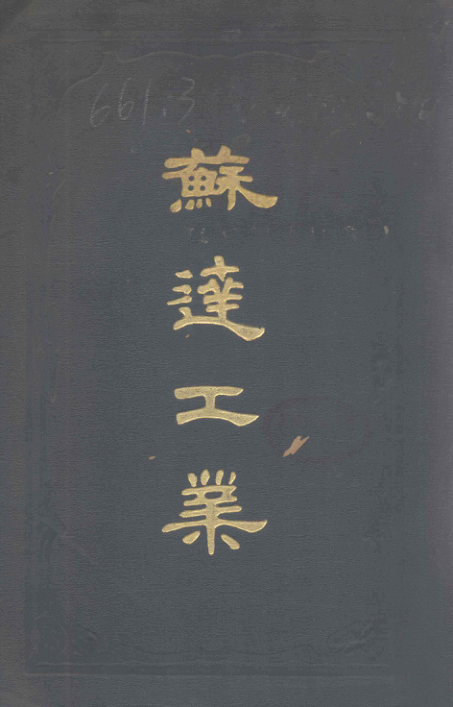 661.3
蘇達工業